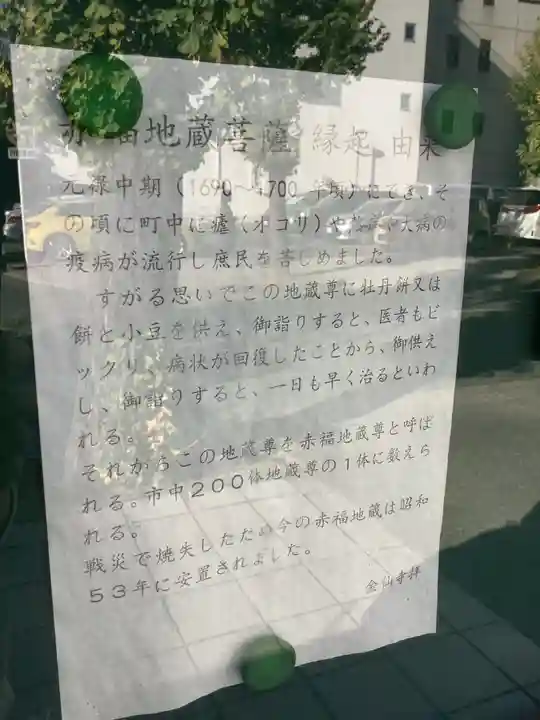 赤福地蔵菩薩 縁起 由来
元禄中期(1690～1700年頃)にでき、そ
の頃に町中に瘧(オコリ)や 大病の
疫病が流行し庶民を苦しめました。
すがる思いでこの地蔵尊に牡丹餅又は
餅と小豆を供え、御詣りすると、医者もビ
ックリ、病状が回復したことから、御供え
し、御詣りすると、一日も早く治るといわ
れる。
それからこの地蔵尊を赤福地蔵尊と呼ば
れる。市中200体地蔵尊の1体に数えら
れる。
戦災で焼失したため今の赤福地蔵は昭和
53年に安置されました。
金仙寺拝